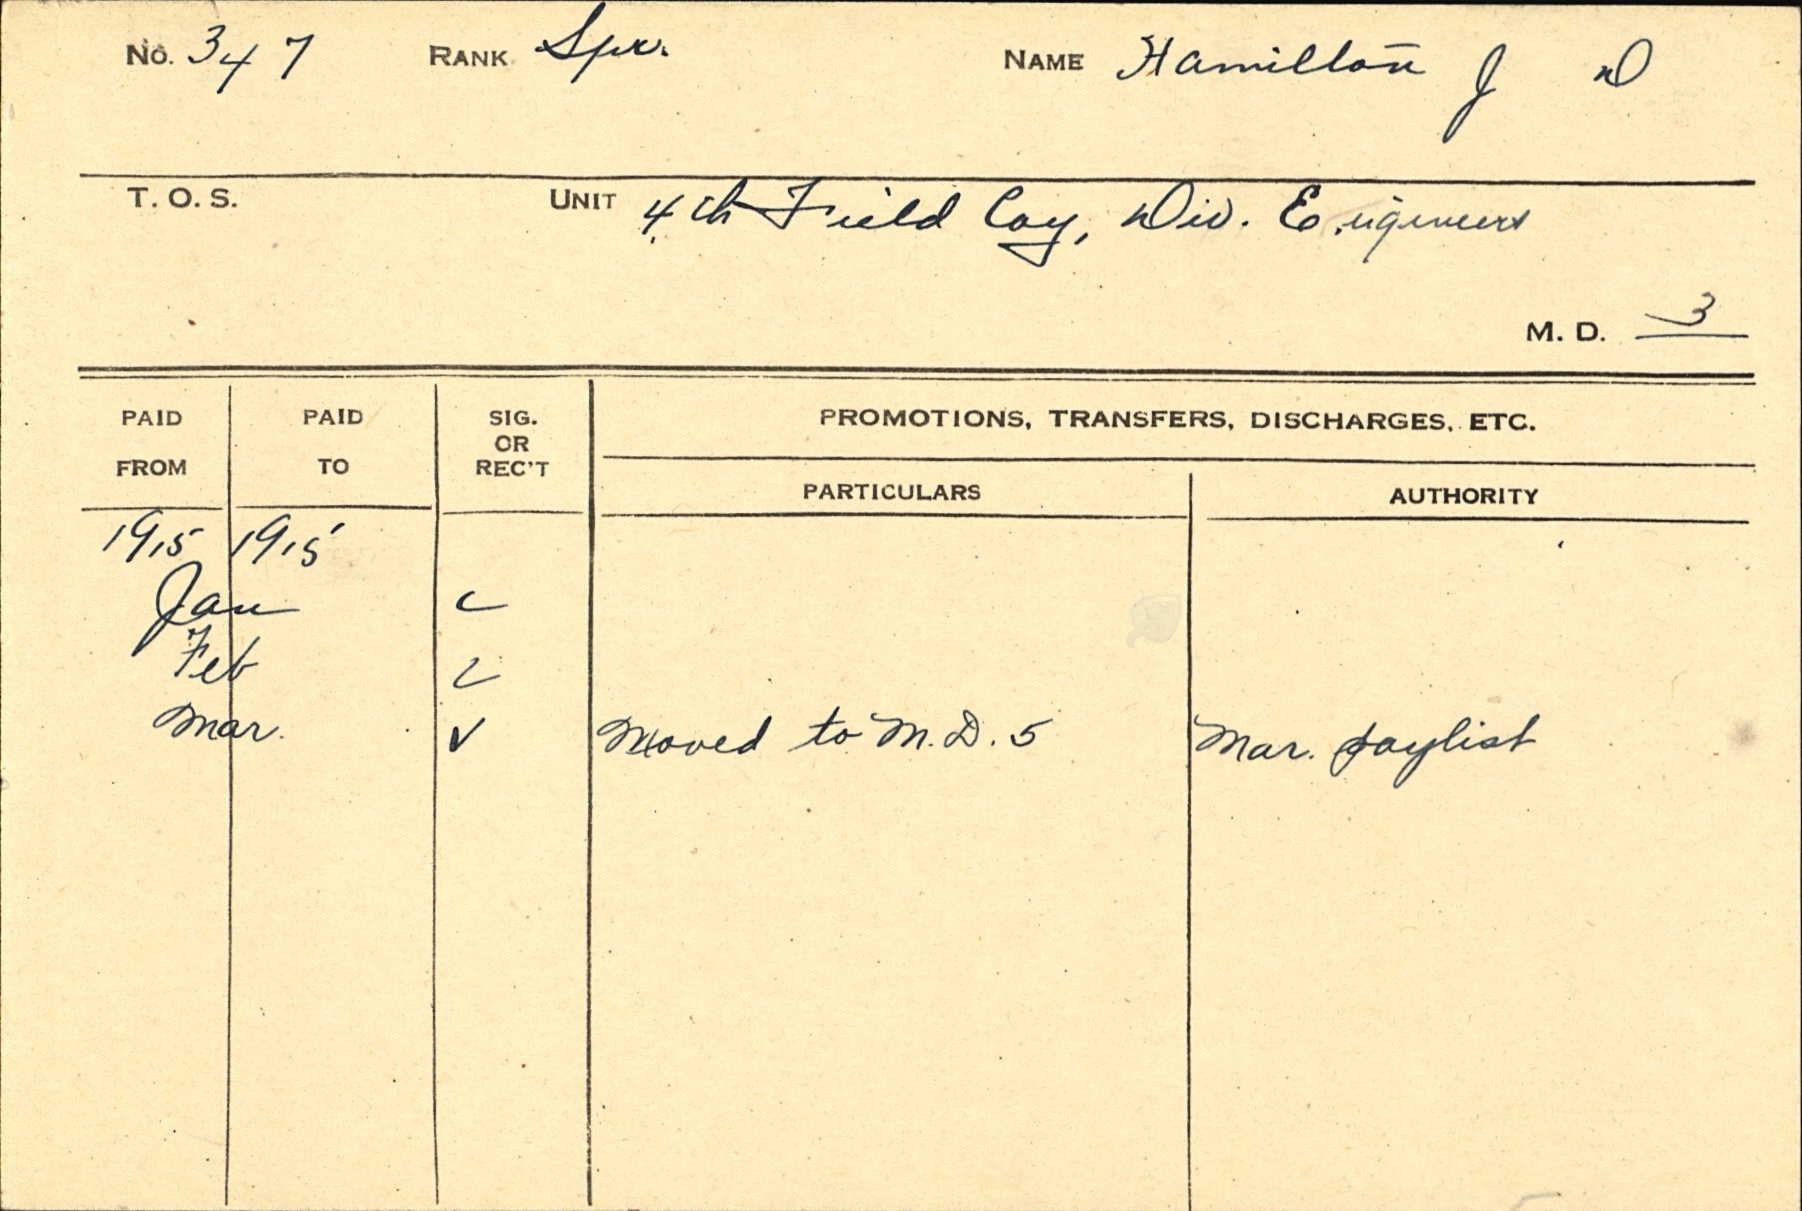 No. 347 RANK Spr. NAME Hamilton J D
T. O. S. UNIT 4th Field Coy, Div. Engineers
M. D. 3
PAID FROM PAID TO SIG. OR REC'T PROMOTIONS, TRANSFERS, DISCHARGES, ETC.
PARTICULARS AUTHORITY
1915 1915
Jan
Feb
Mar. ✓ Moved to M.D. 5 Mar. paylist